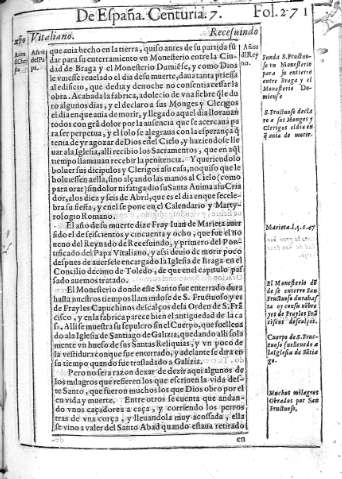 De España. Centuria. 7. Fol. 271
Año Vitaliano. Recesuindo
que auia hecho en la tierra, quiso antes de su partida fũ
dar para su enterramiento en Monesterio entre la Ciu-
dad de Braga y el Monesterio Dumiẽse, y como Dios
le vuiesse reuelado el dia de su muerte, daua tanta priessa
al edificio, que de dia y de noche no consentia cessar la
obra. Acabada la fabrica, adolecio de vna fiebre q̃ le du
ro algunos dias, y el declaro a sus Monges y Clerigos
el dia en que auia de morir, y llegado aquel dia llorauan
todos con grã dolor por la ausencia que se acercaua pa
ra ser perpetua, y el solo se alegraua con la esperança q̃
tenia de yr a gozar de Dios en el Cielo, y haziendose lle
uar a la Iglesia, alli recibio los Sacramentos, que en aq̃l
tiempo llamauan recebir la penitencia. Y queriendolo
boluer sus dicipulos y Clerigos a su casa, no quiso que le
boluiessen a ella, sino alçando las manos al Cielo (como
para orar) sin dolor ni fatiga dio su Santa Anima a su Cria
dor, a los diez y seis de Abril, que es el dia en que se cele-
bra su fiesta, y en el se pone en el Calendario y Marty-
rologio Romano.
El año de su muerte dize Fray Iuan de Marieta auer
sido el de seiscientos y cincuenta y ocho, que fue el no
neno del Reynado de Recesuindo, y primero del Pon-
tificado del Papa Vitaliano, y assi deuio de morir poco
despues de auersele encargado la Iglesia de Braga en el
Concilio decimo de Toledo, de que en el capitulo pas-
sado auemos tratado.
El Monesterio donde este Santo fue enterrado dura
hasta nuestros tiempos llamandose de S. Fructuoso, y es
de Frayles Capuchinos descalços de la Orden de S. Frã
cisco, y en la fabrica parece bien el antiguedad de la ca
sa. Alli se muestra su sepulcro sin el Cuerpo, que se lleuo
do a la Iglesia de Santiago de Galizia, quedando alli sola
mente vn huesso de sus Santas Reliquias, y vn poco de
la vestidura con que fue enterrado, y adelante se dira en
su tiempo quando fue trasladado a Galizia.
Pero no sera razon dexar de dezir aqui algunos de
los milagros que refieren los que escriuen la vida des-
te Santo, que fueron muchos los que Dios obro por el
en vida y muerte. Entre otros se cuenta que andan-
do vnos caçadores a caça, y corriendo los perros
tras de vna corça, y lleuandola muy acossada, ella
se vino a valer del Santo Abad quando estaua retirado
en
Funda S. Fructuo-
so vn Monesterio
para su entierro
entre Braga y el
Monesterio Du-
miense.
S. Fructuoso decla
ro a sus Monges y
Clerigos el dia en q̃
auia de morir.
Marieta.l.5.c.47
El Monesterio dõ
de se enterro San
Fructuoso dura has
ta oy
yles de Fray les Frã
ciscos descalços.
Cuerpo de S. Fruc-
tuoso
la Iglesia de Sãtia
go.
Muchos milagros
Obrados por San
Fructuoso,